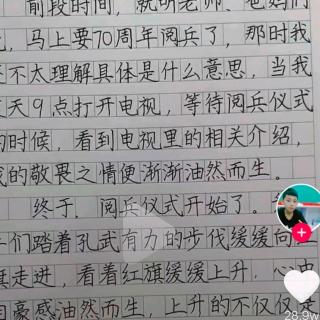 前段时间，就听老师、爸妈们
，马上要70周年阅兵了，那时我
不太理解具体是什么意思，当我
天9点打开电视，等待阅兵仪式
的时候，看到电视里的相关介绍，
的敬畏之情便渐渐油然而生。
终于，阅兵仪式开始了。
们踏着孔武有力的步伐缓缓向
走进，看着红旗缓缓上升，心中
自豪感油然而生，上升的不仅仅是
28.9w